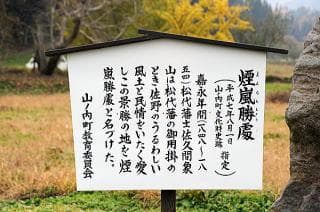 煙嵐勝處
えんらんしょうしょ
(平成七年八月一日
山ノ内町文化財史跡 指定)
嘉永年間(一八四八〜一八
五四)松代藩士佐久間象
山は松代藩の御用掛の
とき佐野のうるわしい
風土と民情をいたく愛
しこの景勝の地を煙
嵐勝處と名づけた。
山ノ内町教育委員会